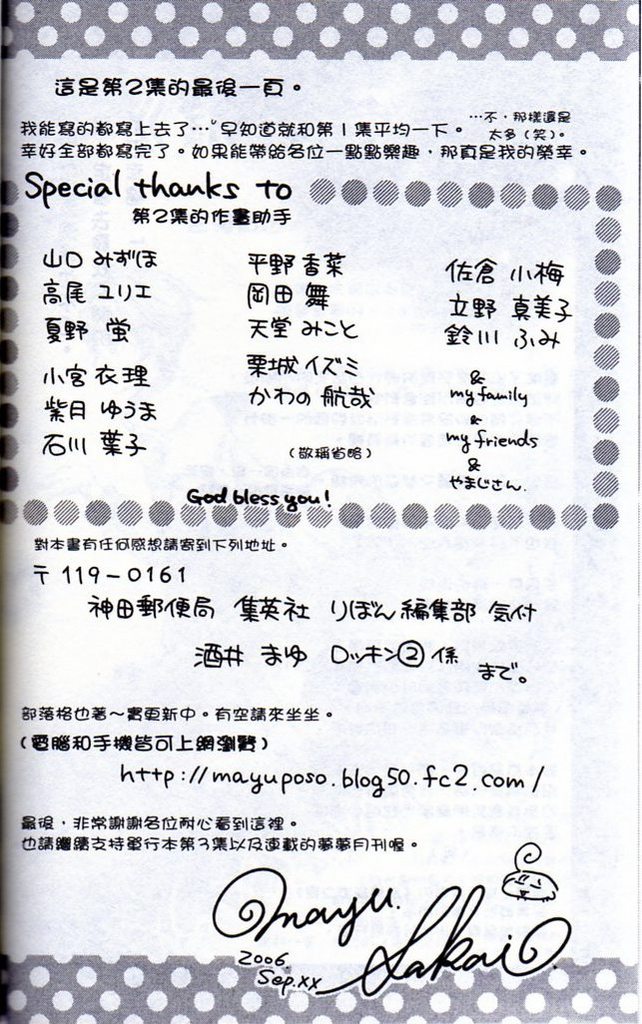 這是第2集的最後一頁。
我能寫的都寫上去了…早知道就和第1集平均一下。
…不,那樣還是
太多(笑)。
幸好全部都寫完了。如果能帶給各位一點點樂趣,那真是我的榮幸。
Special thanks to
第2集的作畫助手
山口 みずほ
高尾 ユリエ
夏野 蛍
小宮 衣理
紫月 ゆうま
石川 葉子
平野 香菜
岡田 舞
天堂 みこと
栗城 イズミ
かわの 航哉
(敬稱省略)
佐倉 小梅
立野 真美子
鈴川 ふみ
&
my family
&
my friends
&
やまじさん.
God bless you!
對本書有任何感想請寄到下列地址。
〒119-0161
神田郵便局 集英社 りぼん編集部 気付
酒井 まゆ ロッキン② 係
まで。
部落格也著~實更新中。有空請來坐坐。
(電腦和手機皆可上網瀏覽)
http://mayuposo.blog50.fc2.com/
最後,非常謝謝各位耐心看到這裡。
也請繼續支持單行本第3集以及連載的夢夢月刊喔。
mayu. Sakai
2006.
Sep.xx